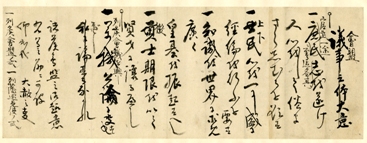 會盟
議事之体大意
一庶民志を遂け
人心をして倦
まさらしむるを欲す
上下
一士民心を一にし盛に
経綸を行ふを要す
一知識を世界に求め
広く
皇基を振起すへし
徴
一貢士期限を以て
賢才に譲るへし
一万機公論に決し
私に論するなかれ
諸侯会盟之御趣意
大赦之事
一列侯会盟の式　一列藩巡見使の式